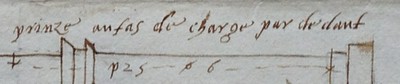 prinze antas de charge par dedant
p 2 5 - p 6